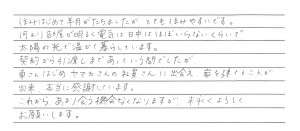 住みはじめて半月がたちましたが とても住みやすいです。
何より部屋が明るく電気は日中はほぼいらないくらいで
太陽の光で温かく暮らしています。
契約から引渡しまであっという間でしたが
東さんはじめヤマカさんの社員さんに出会え 家を建てることが
出来、本当に感謝しています。
これから あまり会う機会なくなりますが 末永くよろしく
お願いします。